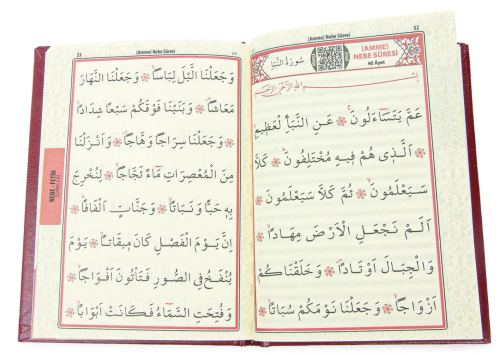 52
(Amme) Nebe Sûresi
(AMME)
NEBE SÛRESİ
40 Ayet
سُورَةُ النَّبَأِ
بِسْمِ اللهِ الرَّحْمٰنِ الرَّحِيمِ
عَمَّ يَتَسَاءَلُونَ عَنِ النَّبَأِ الْعَظِيمِ
اَلَّذِى هُمْ فِيهِ مُخْتَلِفُونَ كَلَّا
سَيَعْلَمُونَ ثُمَّ كَلَّا سَيَعْلَمُونَ
اَلَمْ نَجْعَلِ الْاَرْضَ مِهَادًا
وَالْجِبَالَ اَوْتَادًا وَخَلَقْنَاكُمْ
اَزْوَاجًا وَجَعَلْنَا نَوْمَكُمْ سُبَاتًا
53
(Amme) Nebe Sûresi
وَجَعَلْنَا الَّيْلَ لِبَاسًا وَجَعَلْنَا النَّهَارَ
مَعَاشًا وَبَنَيْنَا فَوْقَكُمْ سَبْعًا شِدَادًا
وَجَعَلْنَا سِرَاجًا وَهَّاجًا وَاَنْزَلْنَا
مِنَ الْمُعْصِرَاتِ مَاءً ثَجَّاجًا لِنُخْرِجَ
بِهِ حَبًّا وَنَبَاتًا وَجَنَّاتٍ اَلْفَافًا
اِنَّ يَوْمَ الْفَصْلِ كَانَ مِيقَاتًا يَوْمَ
يُنْفَخُ فِى الصُّورِ فَتَأْتُونَ اَفْوَاجًا
وَفُتِحَتِ السَّمَاءُ فَكَانَتْ اَبْوَابًا
NEBE - FETİH